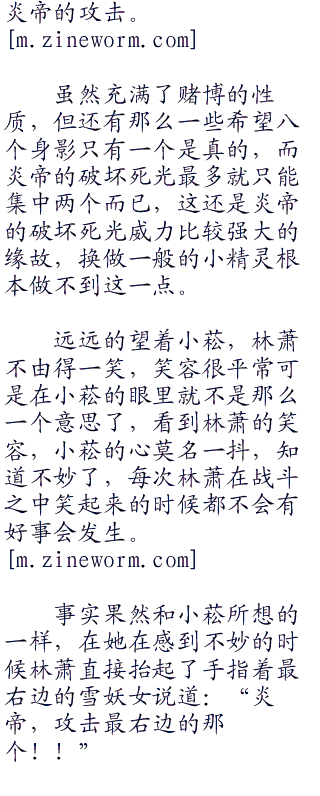 炎帝的攻击。
[m.zineworm.com]
虽然充满了赌博的性
质，但还有那么一些希望八
个身影只有一个是真的，而
炎帝的破坏死光最多就只能
集中两个而已，这还是炎帝
的破坏死光威力比较强大的
缘故，换做一般的小精灵根
本做不到这一点。
远远的望着小菘，林萧
不由得一笑，笑容很平常可
是在小菘的眼里就不是那么
一个意思了，看到林萧的笑
容，小菘的心莫名一抖，知
道不妙了，每次林萧在战斗
之中笑起来的时候都不会有
好事会发生。
[m.zineworm.com]
事实果然和小菘所想的
一样，在她在感到不妙的时
候林萧直接抬起了手指着最
右边的雪妖女说道：“炎
帝，攻击最右边的那
个！！”